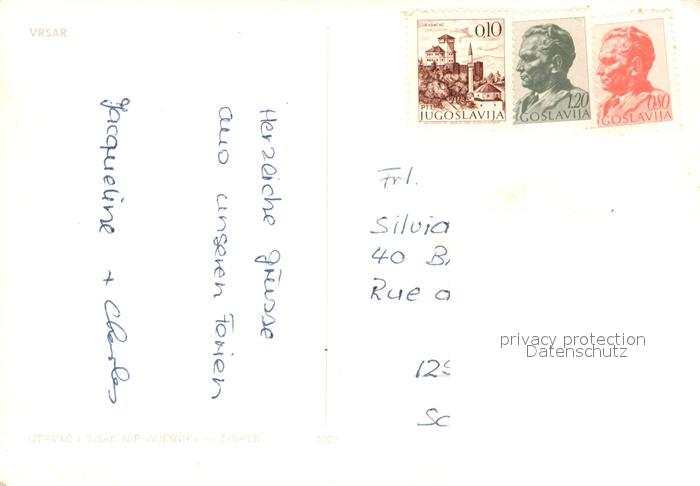 VRSAR
Herzliche Grüsse
aus unseren Ferien
Jacqueline + Charles
IZDAVAČ I TISAK NIP VJESNIK — ZAGREB
GRADAČAC
0,10
PTT
JUGOSLAVIJA
1,20
GOSLAVIJA
0,80
GOSLAVIJA
Frl.
Silvia
40 B
Rue
privacy protection
Datenschutz